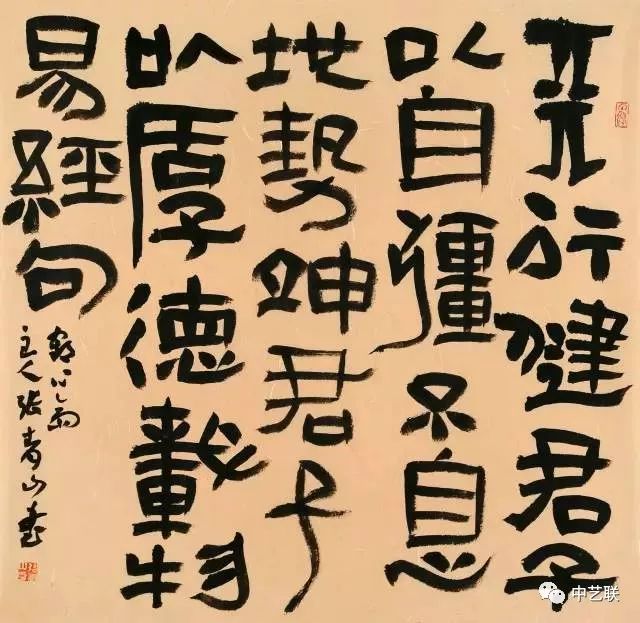 天行健君子
以自彊不息
地勢坤君子
以厚德載物
易經句
主人张青山書
中艺联